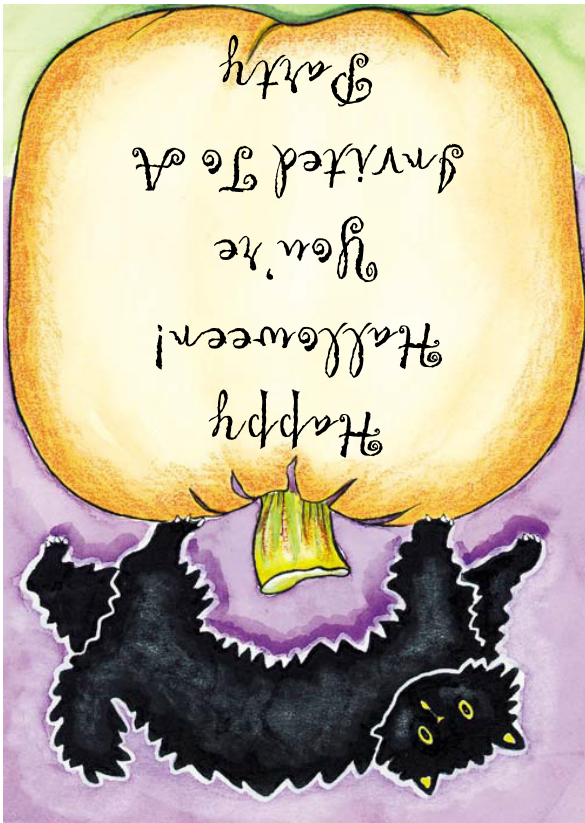 Happy
Halloween!
You're
Invited To A
Party